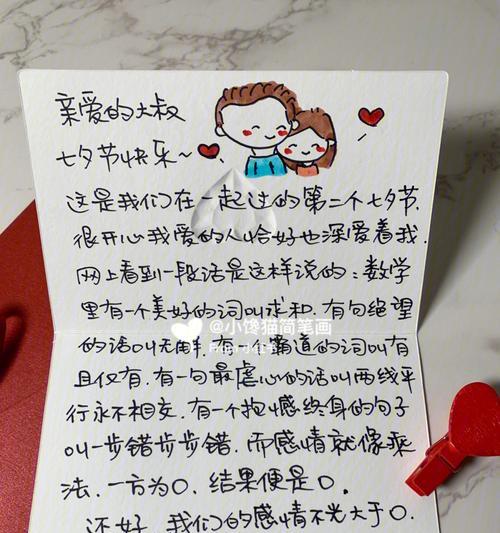 亲爱的大叔
七夕节快乐~
这是我们在一起过的第二个七夕节.
很开心我爱的人恰好也深爱着我.
网上看到一段话是这样说的:数学
里有一个美好的词叫求和.有句绝望
@小馋猫简笔画
的话叫无解.有一个霸道的词叫有
且仅有.有一句最虐心的话叫两线平
行永不相交.有一个抱憾终身的句子
叫一步错步步错.而感情就像乘
法.一方为0.结果便是0.
还好.我们的感情不光大于0.